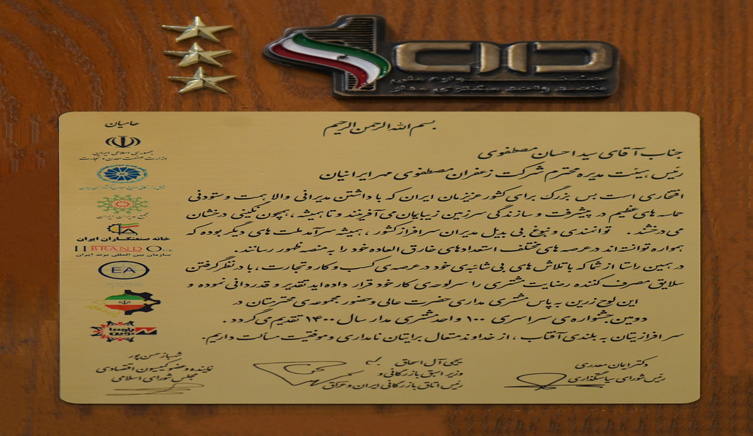 حامیان
جمهوری اسلامی ایران
وزارت صنعت معدن و تجارت
خانه صنعتگران ایران
BRAND
سازمان بین المللی برند ایران
EA
بسم الله الرحمن الرحیم
جناب آقای سید احسان مصطفوی
رئیس هیئت مدیره محترم شرکت زعفران مصطفوی مهر ایرانیان
افتخاری است بس بزرگ برای کشور عزیزمان ایران که با داشتن مدیرانی والا همت وستودنی
حماسه های عظیم در پیشرفت و سازندگی سرزمین زیبایمان می آفرینند و تا همیشه، همچون نگینی درخشان
می درخشند. توانمندی و نبوغ بی بدیل مدیران سرافراز کشور، همیشه سرآمد ملت های دیگر بوده که
همواره توانسته اند در عرصه های مختلف استعدادهای خارق العاده خود را به منصه ظهور رسانند.
در همین راستا از شما که با تلاش های بی شائبه ی خود در عرصه ی کسب و کار و تجارت، با در نظر گرفتن
سلایق مصرف کننده رضایت مشتری را سرلوحه ی کار خود قرار داده اید تقدیر و قدردانی نموده و
این لوح زرین به پاس مشتری مداری حضرت عالی و حضور مجموعه ی محترمتان در
دومین جشنواره ی سراسری ۱۰۰ واحد مشتری مدار سال ۱۴۰۰ تقدیم می گردد.
سرافرازیتان به بلندی آفتاب، از خداوند متعال برایتان نامداری و موفقیت مسالت داریم.
دکتر ایمان صدری
رئیس شورای سیاستگذاری
یحیی آل اسحاق
وزیر اسبق بازرگانی و
رئیس اتاق بازرگانی ایران و عراق
شهباز حسن پور
نماینده و عضو کمیسیون اقتصادی
مجلس شورای اسلامی